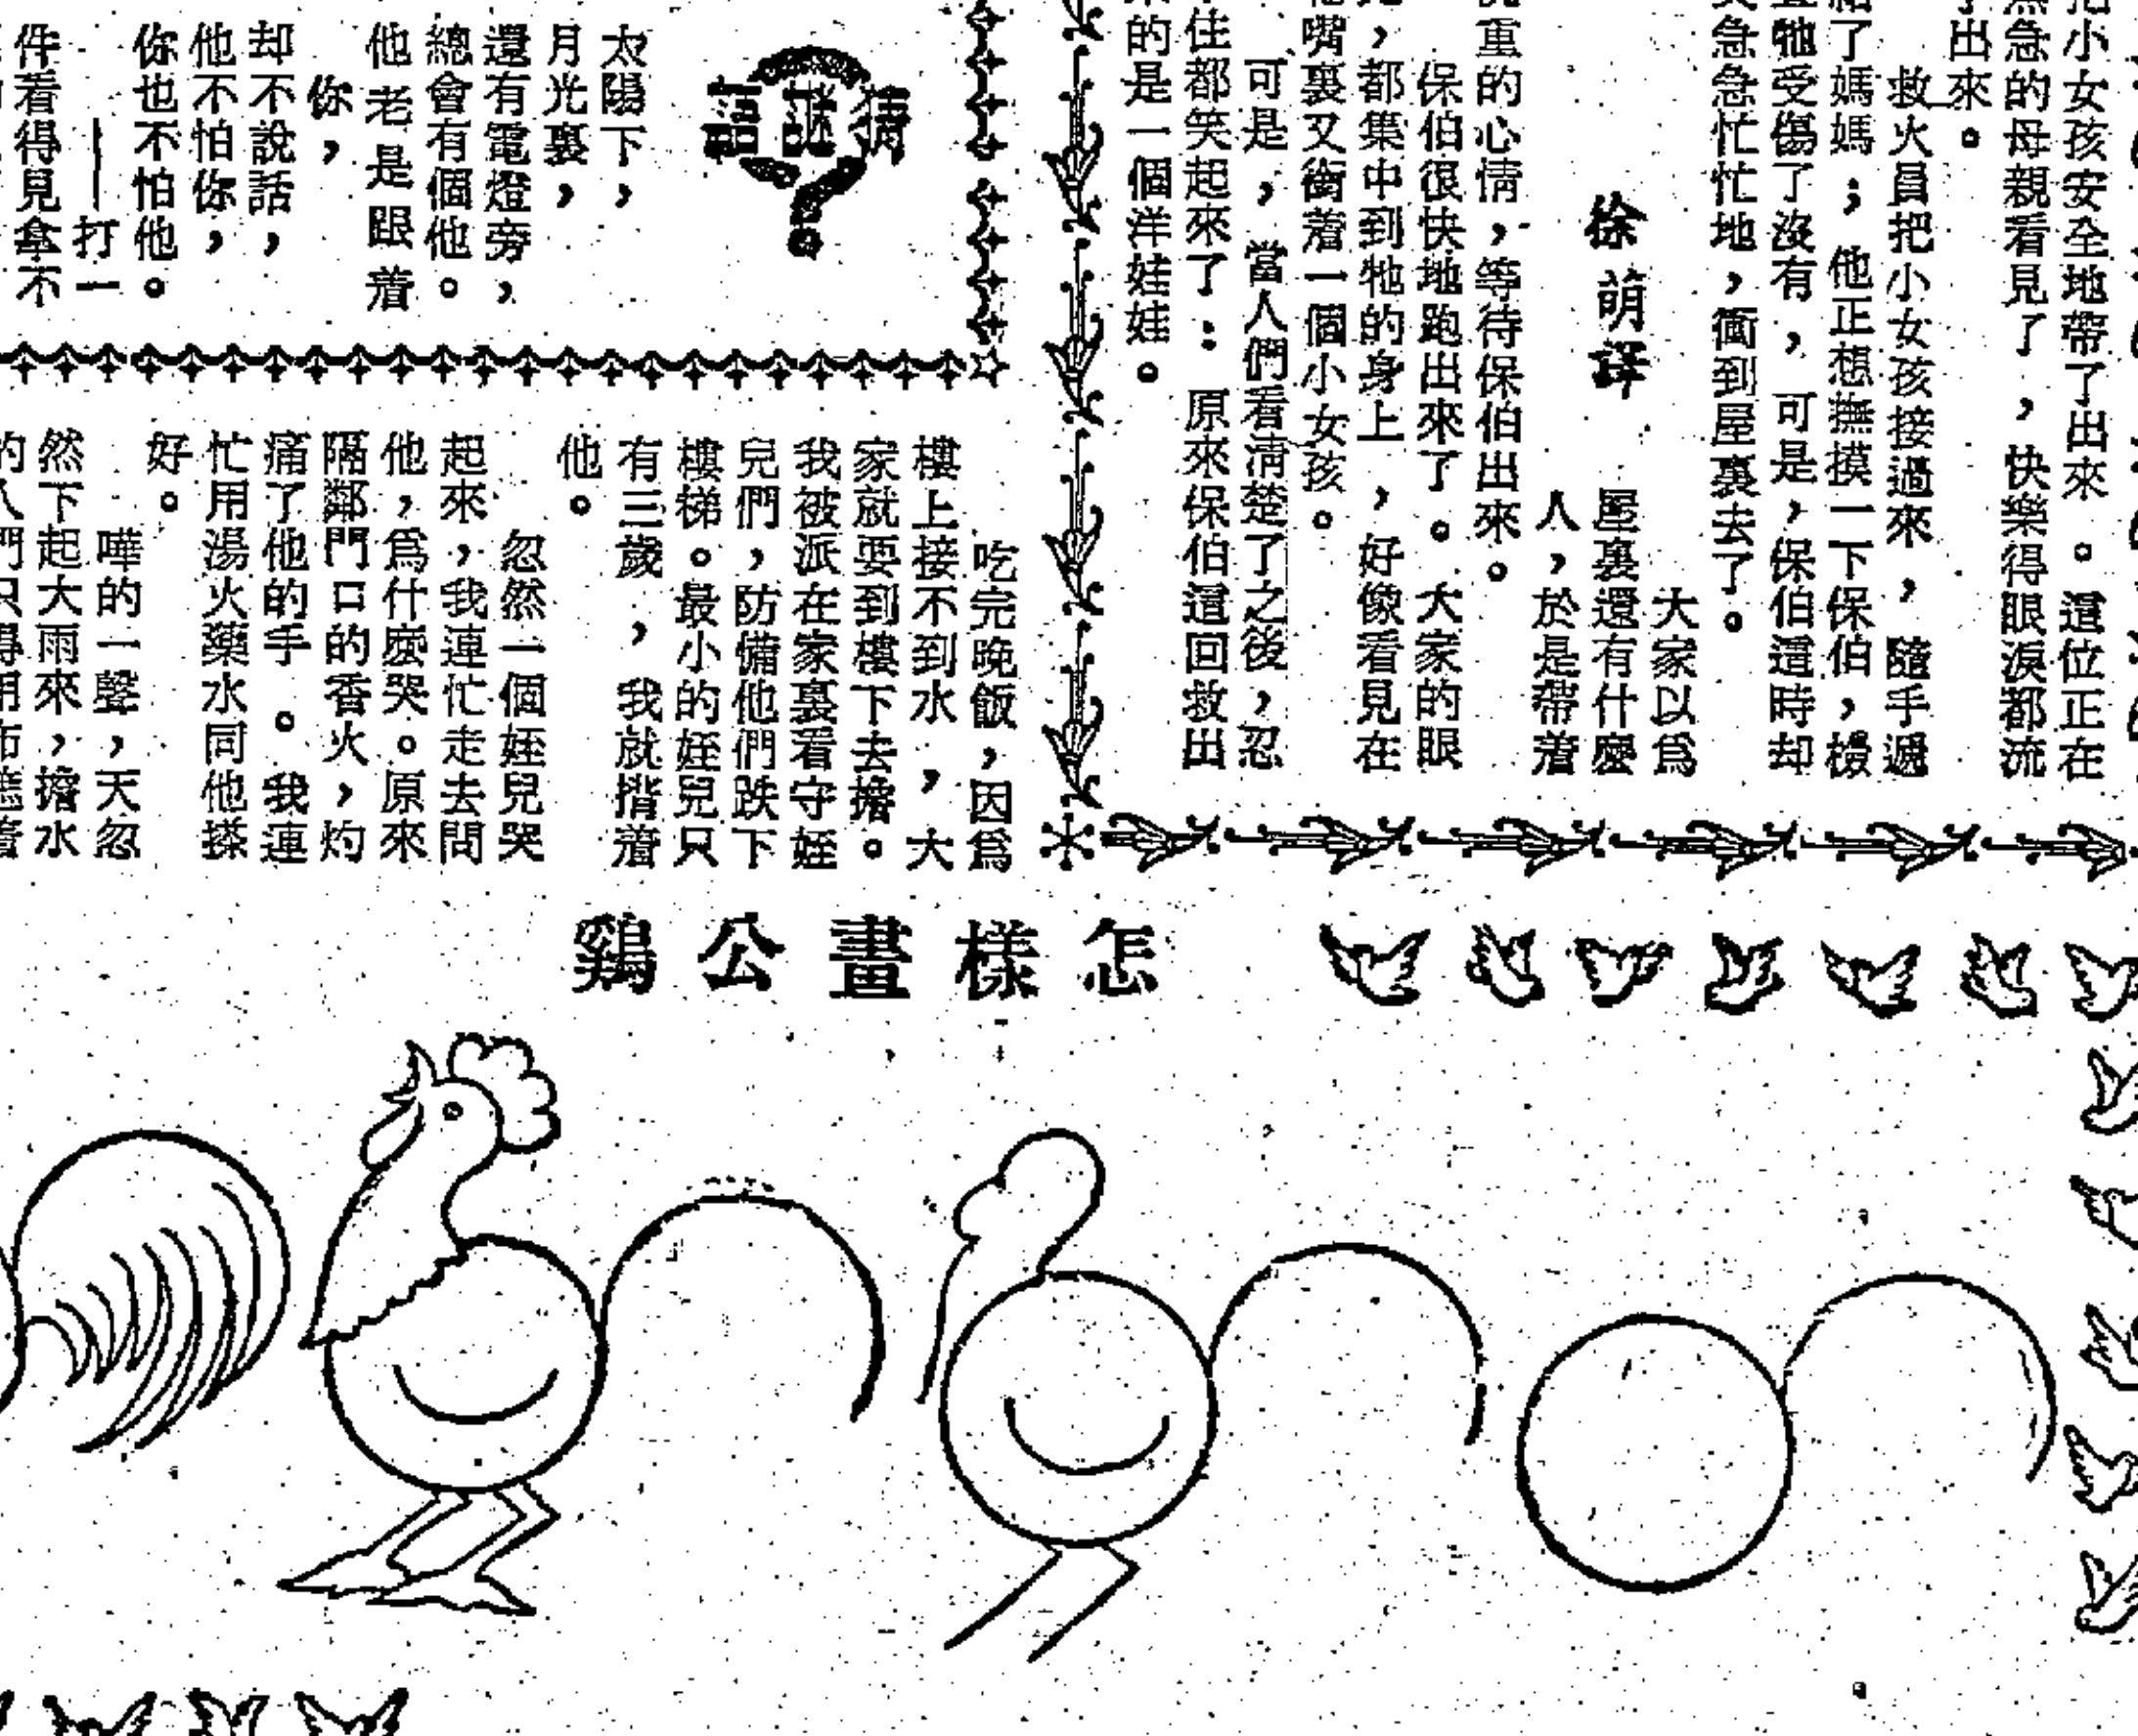 把小女孩安全地帶了出來。這位正在
焦急的母親看見了，快樂得眼淚都流
了出來。
救火員把小女孩接過來，隨手遞
給了媽媽；他正想撫摸一下保伯，檢
查牠受傷了沒有，可是，保伯這時却
急急忙忙地，衝到屋裏去了。
徐萌譯
大家以爲
屋裏還有什麼
人，於是帶着
重的心情，等待保伯出來。
保伯很快地跑出來了。大家的眼
，都集中到牠的身上，好像看見在
嘴裏又銜着一個小女孩。
可是，當人們看清楚了之後，忍
住都笑起來了：原來保伯這回救出
的是一個洋娃娃。
猜謎語
太陽下，
月光裏，
還有電燈旁，
總會有個他。
他老是跟着
你，
却不說話，
他不怕你，
你也不怕他。
——打一
件看得見拿不
吃完晚飯，因爲
樓上接不到水，大
家就要到樓下去擔。
我被派在家裏看守姪
兒們，防備他們跌下
樓梯。最小的姪兒只
有三歲，我就揹着
他。
忽然一個姪兒哭
起來，我連忙走去問
他，爲什麼哭。原來
隔鄰門口的香火，灼
痛了他的手。我連
忙用湯火藥水同他搽
好。
嘩的一聲，天忽
然下起大雨來，擔水
怎樣畫公鷄